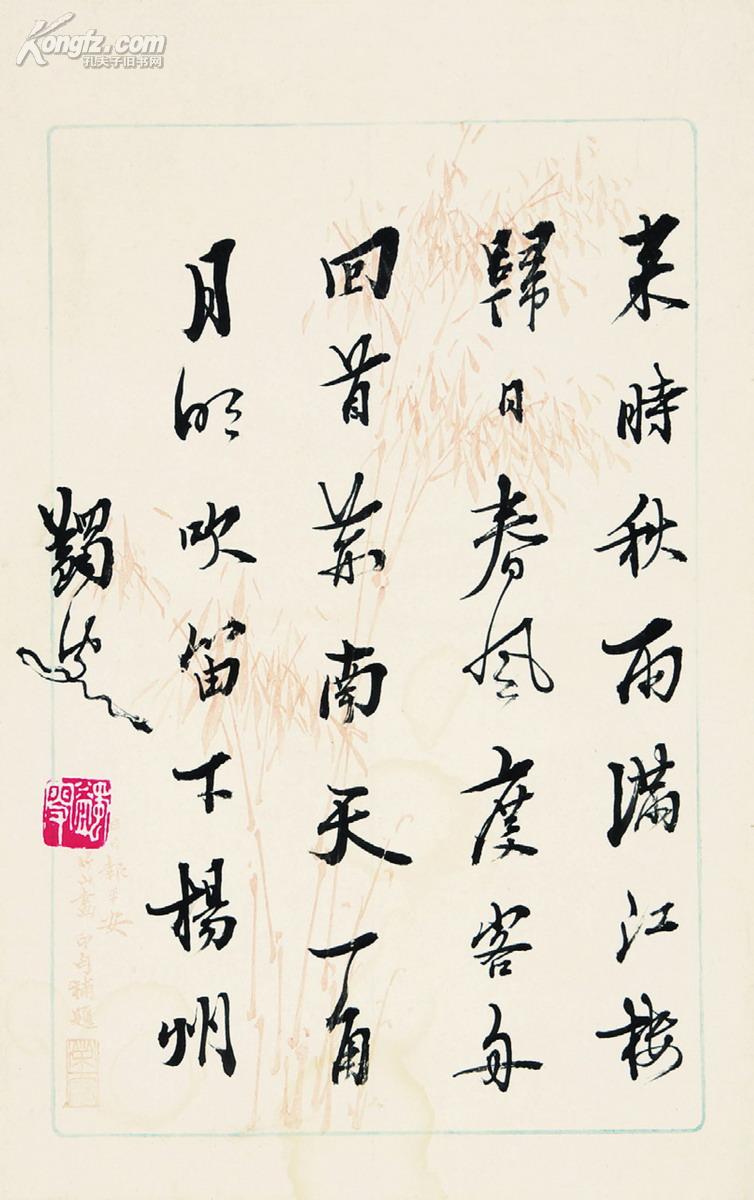 Kongfz.com
孔夫子旧书网
来時秋雨满江楼
歸日春風度客舟
回首荆南天一角
月明吹笛下楊州
蠲叟
報平安
山畫
補題